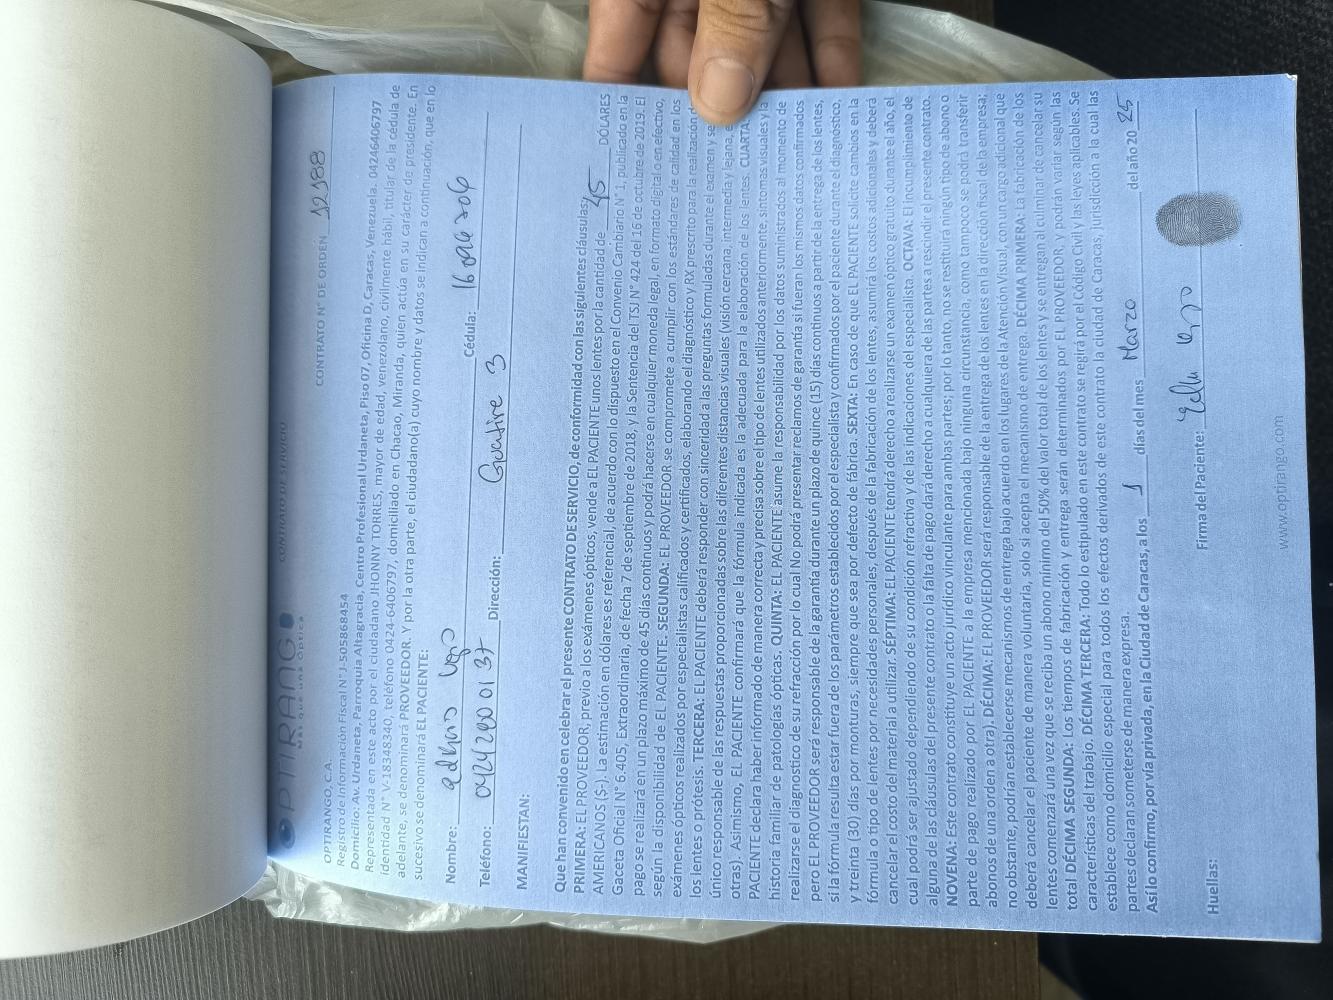 OPTIRANGO
Más que una Óptica
CONTRATO DE SERVICIO
CONTRATO N° DE ORDEN 12188
OPTIRANGO, C.A.
Registro de Información Fiscal N° J-505868454
Domicilio: Av. Urdaneta, Parroquia Altagracia, Centro Profesional Urdaneta, Piso 07, Oficina D, Caracas, Venezuela. 04246406797
Representada en este acto por el ciudadano JHONNY TORRES, mayor de edad, venezolano, civilmente hábil, titular de la cédula de
identidad N° V-18348340, teléfono 0424-6406797, domiciliado en Chacao, Miranda, quien actúa en su carácter de presidente. En
adelante, se denominará PROVEEDOR. Y por la otra parte, el ciudadano(a) cuyo nombre y datos se indican a continuación, que en lo
sucesivo se denominará EL PACIENTE:
Nombre: Cédula: 16096206
Teléfono: 04242000137 Dirección: 3
MANIFIESTAN:
Que han convenido en celebrar el presente CONTRATO DE SERVICIO, de conformidad con las siguientes cláusulas:
PRIMERA: EL PROVEEDOR, previo a los exámenes ópticos, vende a EL PACIENTE unos lentes por la cantidad de 45 DÓLARES
AMERICANOS ($-). La estimación en dólares es referencial, de acuerdo con lo dispuesto en el Convenio Cambiario N° 1, publicado en la
Gaceta Oficial N° 6.405, Extraordinaria, de fecha 7 de septiembre de 2018, y la Sentencia del TSJ N° 424 del 16 de octubre de 2019. El
pago se realizará en un plazo máximo de 45 días continuos y podrá hacerse en cualquier moneda legal, en formato digital o en efectivo,
según la disponibilidad de EL PACIENTE. SEGUNDA: EL PROVEEDOR se compromete a cumplir con los estándares de calidad en los
exámenes ópticos realizados por especialistas calificados y certificados, elaborando el diagnóstico y RX prescrito para la realización
los lentes o prótesis. TERCERA: EL PACIENTE deberá responder con sinceridad a las preguntas formuladas durante el examen y
único responsable de las respuestas proporcionadas sobre las diferentes distancias visuales (visión cercana, intermedia y lejana,
otras). Asimismo, EL PACIENTE confirmará que la fórmula indicada es la adecuada para la elaboración de los lentes. CUARTA
PACIENTE declara haber informado de manera correcta y precisa sobre el tipo de lentes utilizados anteriormente, síntomas visuales y la
historia familiar de patologías ópticas. QUINTA: EL PACIENTE asume la responsabilidad por los datos suministrados al momento de
realizarse el diagnostico de su refracción por lo cual No podrá presentar reclamos de garantía si fueran los mismos datos confirmados
pero EL PROVEEDOR será responsable de la garantía durante un plazo de quince (15) días continuos a partir de la entrega de los lentes,
si la fórmula resulta estar fuera de los parámetros establecidos por el especialista y confirmados por el paciente durante el diagnóstico,
y treinta (30) días por monturas, siempre que sea por defecto de fábrica. SEXTA: En caso de que EL PACIENTE solicite cambios en la
fórmula o tipo de lentes por necesidades personales, después de la fabricación de los lentes, asumirá los costos adicionales y deberá
cancelar el costo del material a utilizar. SÉPTIMA: EL PACIENTE tendrá derecho a realizarse un examen óptico gratuito durante el año, el
cual podrá ser ajustado dependiendo de su condición refractiva y de las indicaciones del especialista. OCTAVA: El incumplimiento de
alguna de las cláusulas del presente contrato o la falta de pago dará derecho a cualquiera de las partes a rescindir el presente contrato.
NOVENA: Este contrato constituye un acto jurídico vinculante para ambas partes; por lo tanto, no se restituirá ningún tipo de abono o
parte de pago realizado por EL PACIENTE a la empresa mencionada bajo ninguna circunstancia, como tampoco se podrá transferir
abonos de una orden a otra). DÉCIMA: EL PROVEEDOR será responsable de la entrega de los lentes en la dirección fiscal de la empresa;
no obstante, podrían establecerse mecanismos de entrega bajo acuerdo en los lugares de la Atención Visual, con un cargo adicional que
deberá cancelar el paciente de manera voluntaria, solo si acepta el mecanismo de entrega. DÉCIMA PRIMERA: La fabricación de los
lentes comenzará una vez que se reciba un abono mínimo del 50% del valor total de los lentes y se entregan al culminar de cancelar su
total DÉCIMA SEGUNDA: Los tiempos de fabricación y entrega serán determinados por EL PROVEEDOR y podrán variar según las
características del trabajo. DÉCIMA TERCERA: Todo lo estipulado en este contrato se regirá por el Código Civil y las leyes aplicables. Se
establece como domicilio especial para todos los efectos derivados de este contrato la ciudad de Caracas, jurisdicción a la cual las
partes declaran someterse de manera expresa.
Así lo confirmo, por vía privada, en la Ciudad de Caracas, a los 1 días del mes Marzo del año 20 25
Huellas: Firma del Paciente:
www.optirango.com